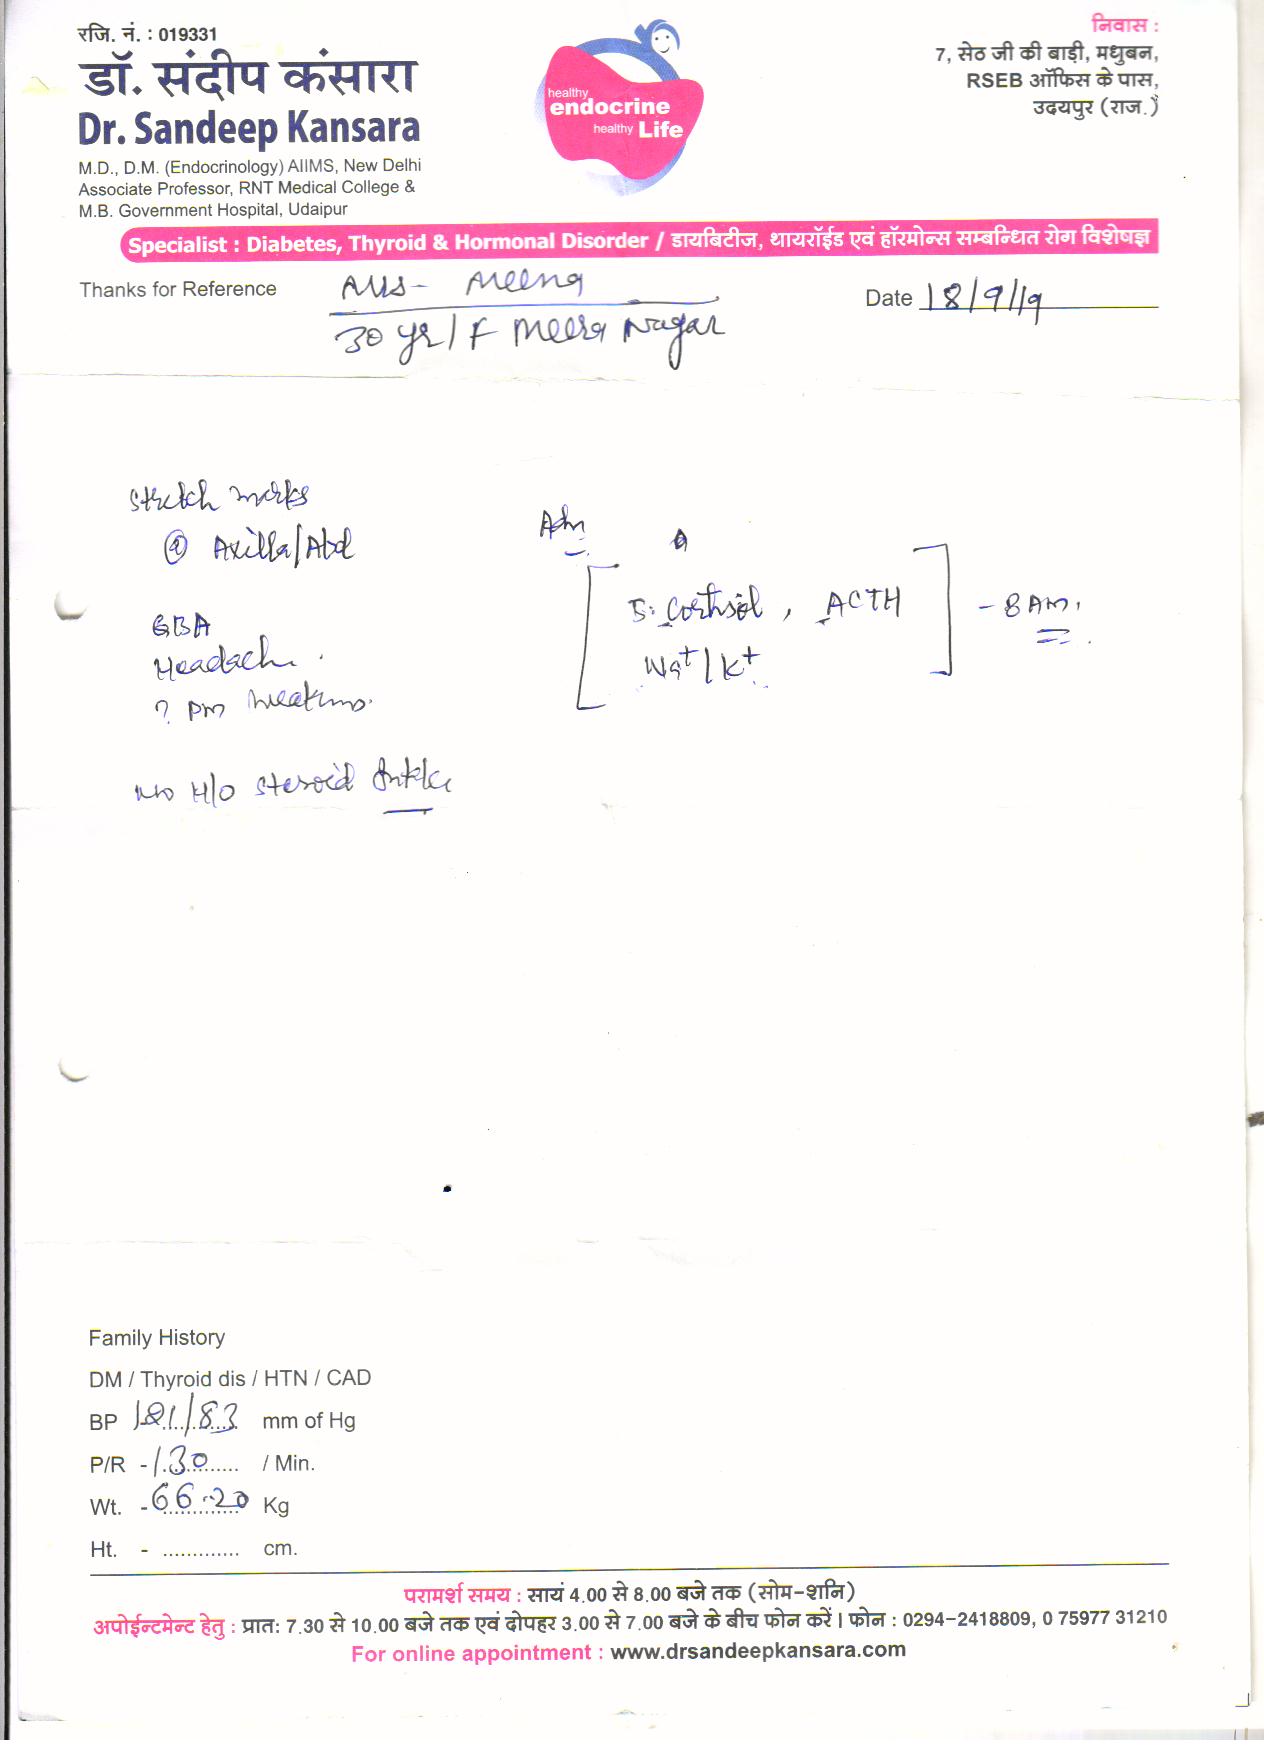 रजि. नं. : 019331
डॉ. संदीप कंसारा
Dr. Sandeep Kansara
M.D., D.M. (Endocrinology) AIIMS, New Delhi
Associate Professor, RNT Medical College &
M.B. Government Hospital, Udaipur
healthy
endocrine
healthy Life
निवास :
7, सेठ जी की बाड़ी, मधुबन,
RSEB ऑफिस के पास,
उदयपुर (राज.)
Specialist : Diabetes, Thyroid & Hormonal Disorder / डायबिटीज, थायरॉईड एवं हॉरमोन्स सम्बन्धित रोग विशेषज्ञ
Thanks for Reference Meena
Date 18/9/19
30 yr/F Meera Nagar
Stretch marks
@ Axilla/Abd
GBA
Headach
? PM weakness
No H/O steroid intake
Adm
S. Cortisol, ACTH
Na+/K+
- 8 AM.
Family History
DM / Thyroid dis / HTN / CAD
BP 121/83 mm of Hg
P/R - 130 / Min.
Wt. - 66.20 Kg
Ht. - ............. cm.
परामर्श समय : सायं 4.00 से 8.00 बजे तक (सोम-शनि)
अपोईन्टमेन्ट हेतु : प्रात: 7.30 से 10.00 बजे तक एवं दोपहर 3.00 से 7.00 बजे के बीच फोन करें। फोन : 0294-2418809, 0 75977 31210
For online appointment : www.drsandeepkansara.com